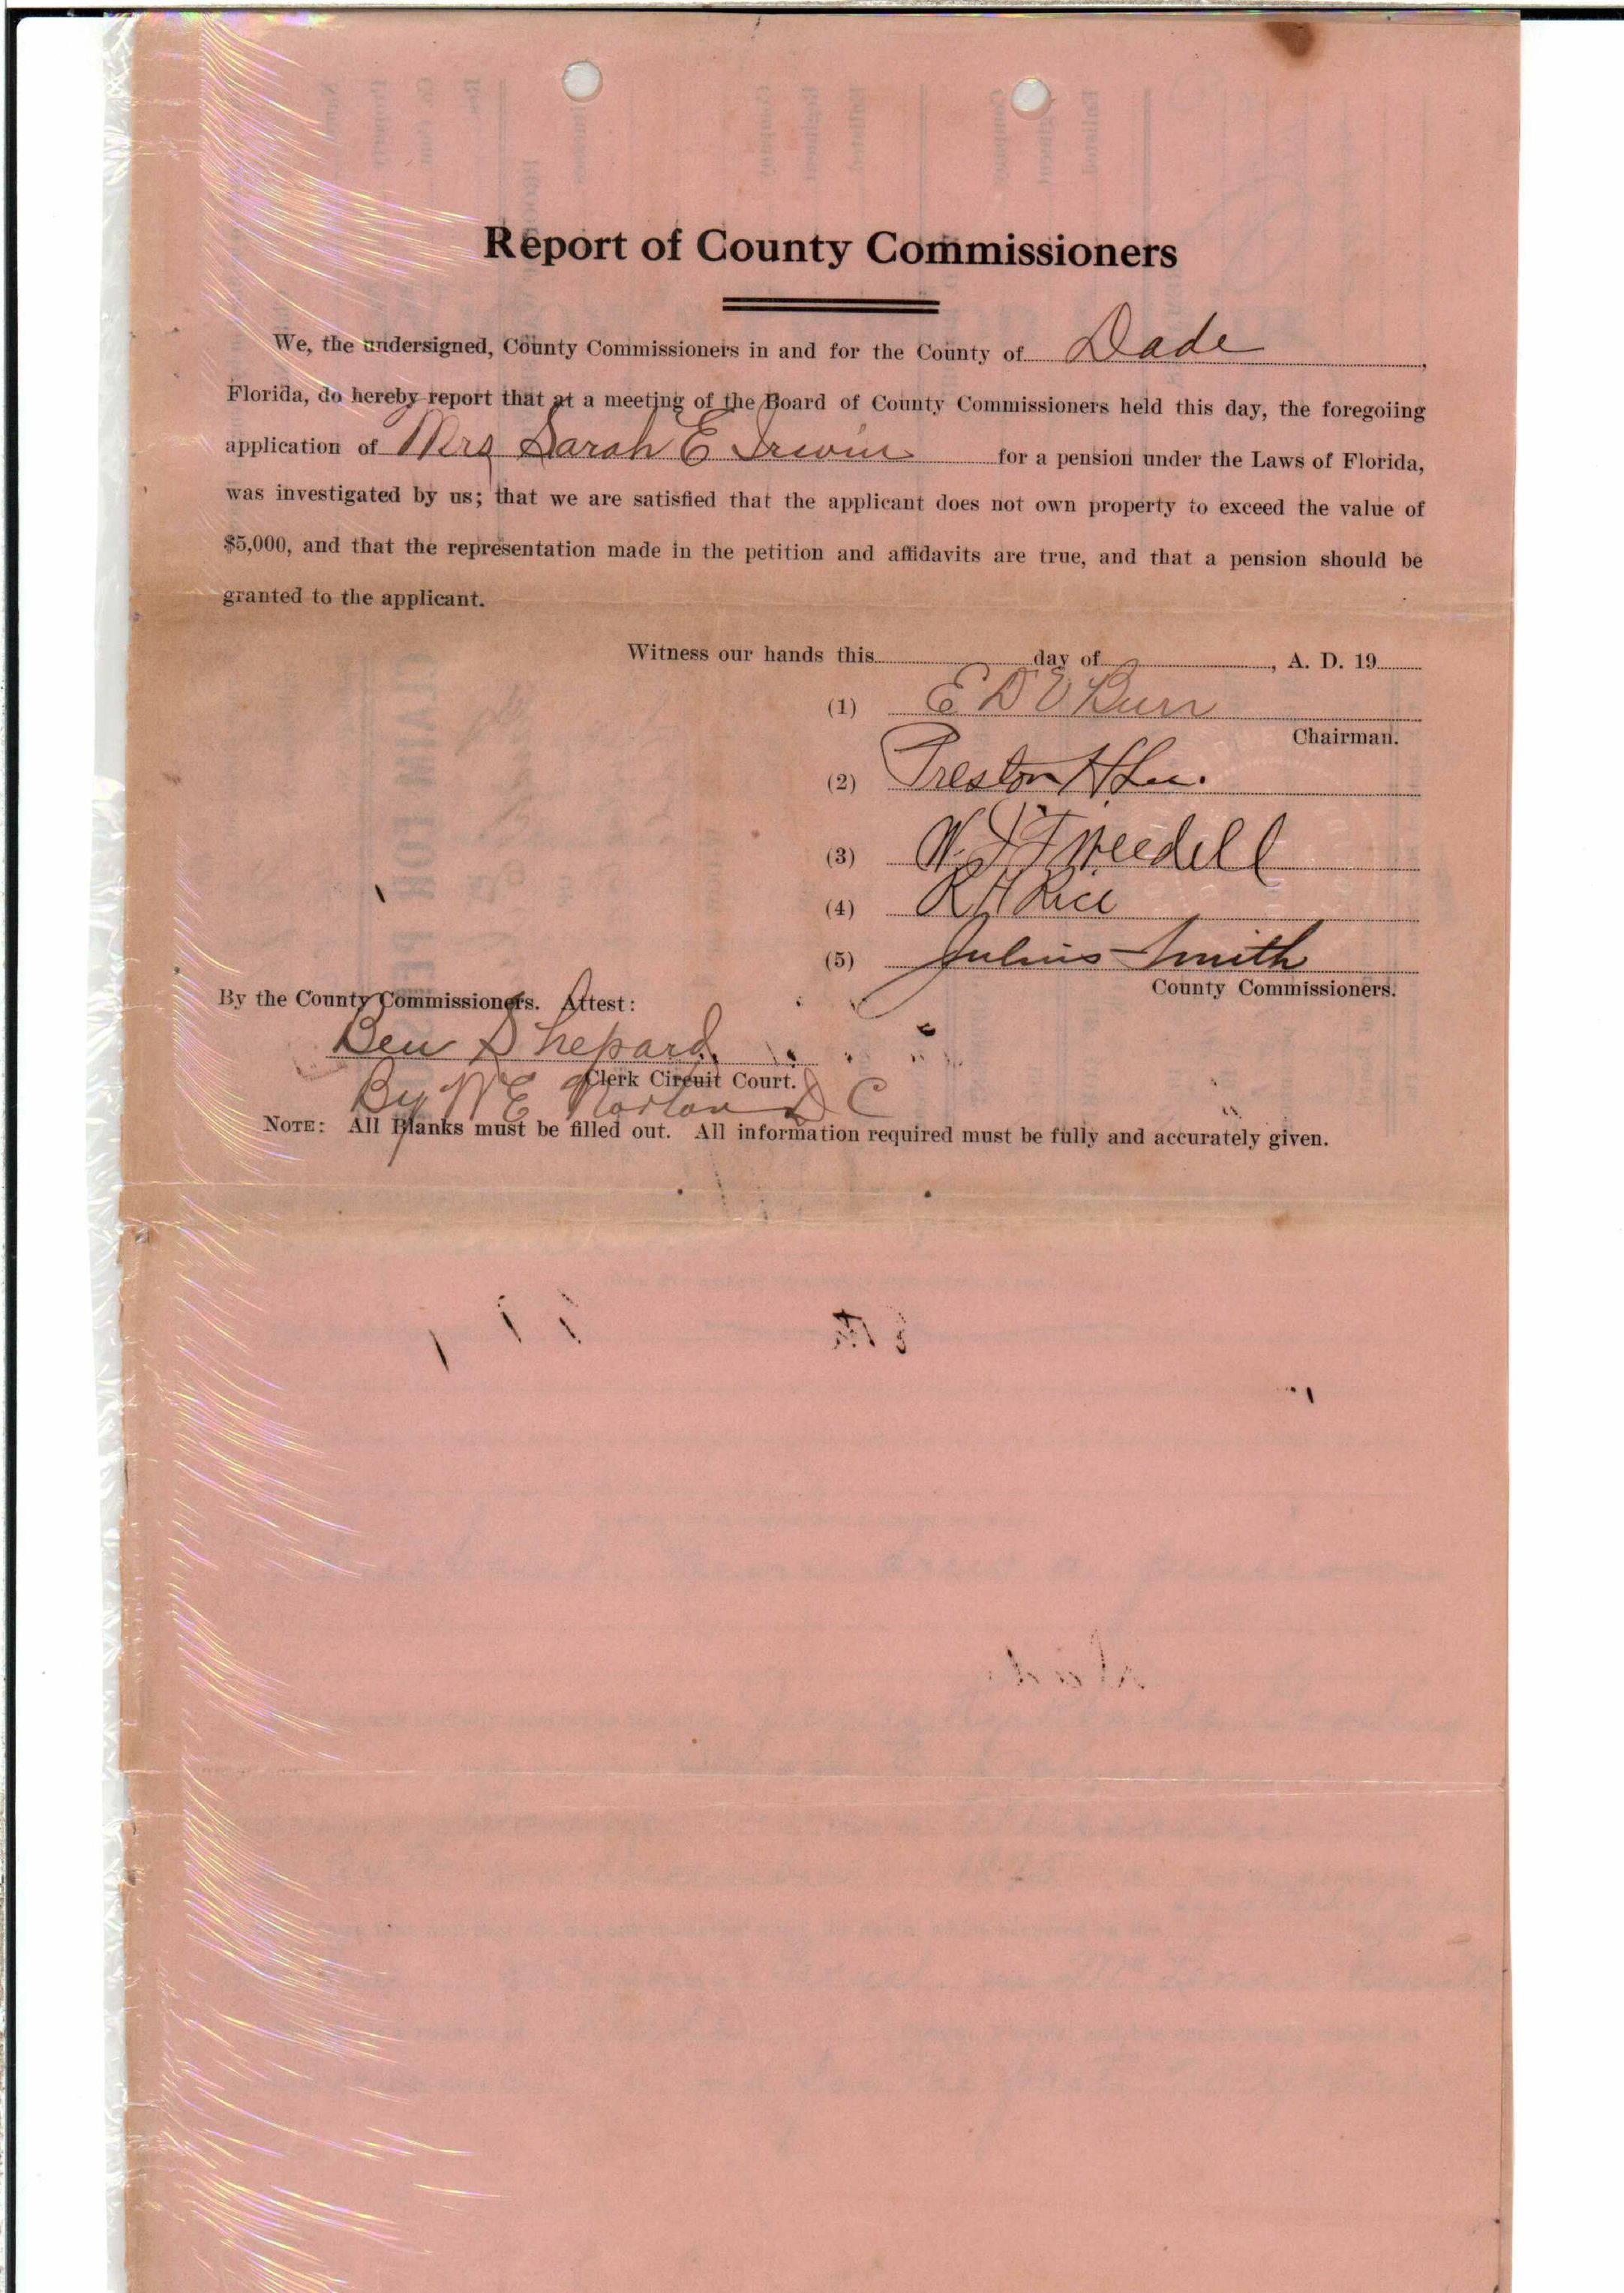 Report of County Commissioners
We, the undersigned, County Commissioners in and for the County of Dade,
Florida, do hereby report that at a meeting of the Board of County Commissioners held this day, the foregoiing
application of Mrs Sarah E Irwin for a pension under the Laws of Florida,
was investigated by us; that we are satisfied that the applicant does not own property to exceed the value of
$5,000, and that the representation made in the petition and affidavits are true, and that a pension should be
granted to the applicant.
Witness our hands this day of , A. D. 19
(1) E D V Burr
Chairman.
(2) Preston H Lee.
(3) W. J Tweedell
(4) R H Rice
(5) Julius Smith
County Commissioners.
By the County Commissioners. Attest:
Ben Shepard,
Clerk Circuit Court.
By W E Norton D C
NOTE: All Blanks must be filled out. All information required must be fully and accurately given.